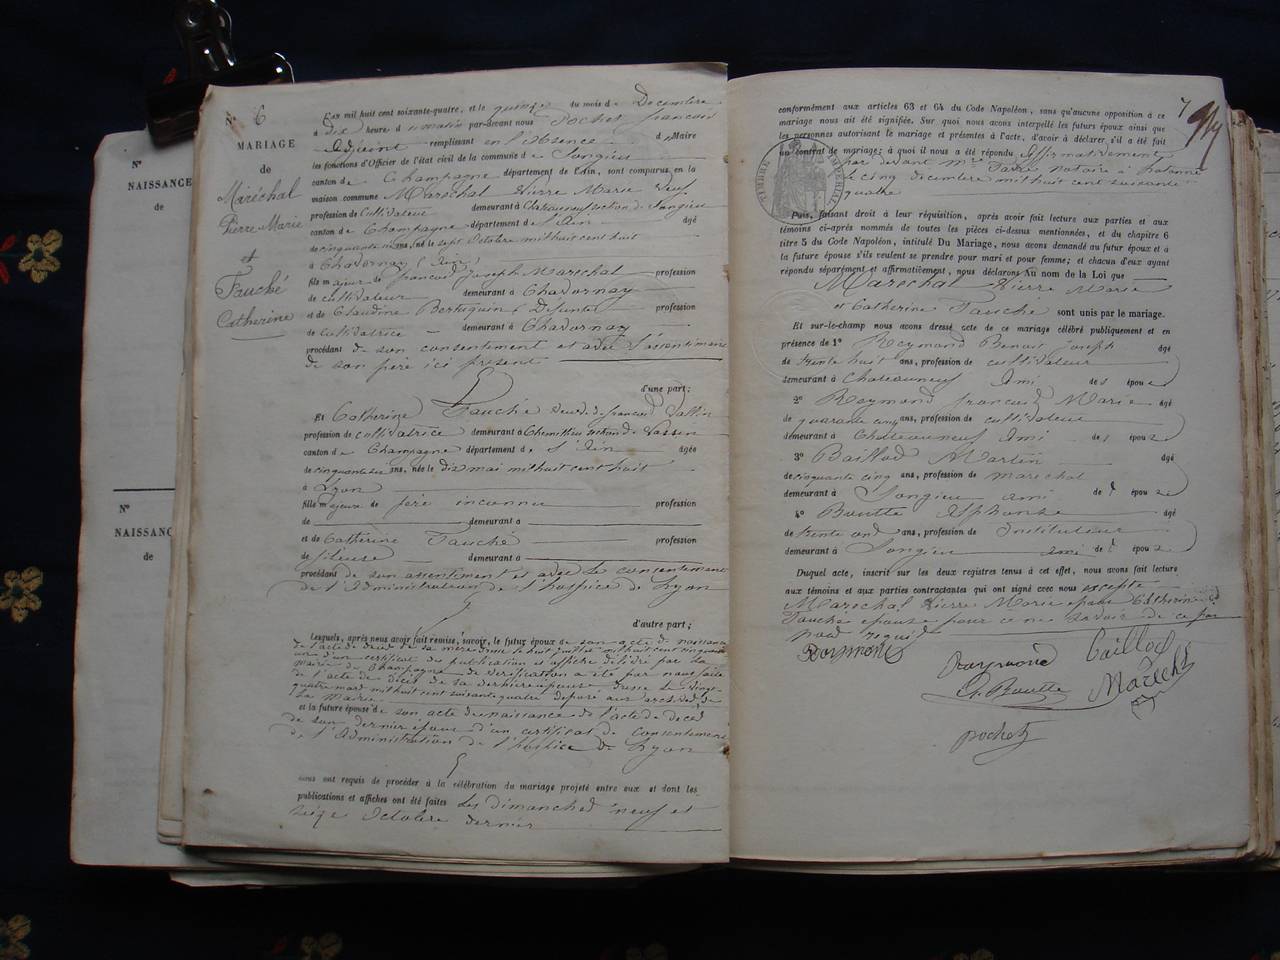 N°
NAISSANCE
de
N°
NAISSANC
de
N° 6
MARIAGE
de
Maréchal
Pierre Marie
et
Fauché
Catherine
L'an mil huit cent soixante-quatre, et le quinze du mois de Décembre
à dix heure du matin par-devant nous Pochet françois
Adjoint remplissant en l'absence d Maire
les fonctions d'Officier de l'état civil de la commune de Songieu
canton de Champagne département de l'Ain, sont comparus en la
maison commune Maréchal Pierre Marie Veuf
profession de cultivateur demeurant à Chateauneuf section de Songieu
canton de Champagne département de l'Ain âgé
de cinquante six ans, né le sept Octobre mil huit cent huit
à Chavornay (Ain)
fils majeur de françois Joseph Maréchal profession
de cultivateur demeurant à Chavornay
et de Claudine Bertuquin Défunte profession
de cultivatrice demeurant à Chavornay
procédant de son consentement et avec l'assentiment
de son père ici présent
d'une part;
Et Catherine Fauché veuve de françois Vallin
profession de cultivatrice demeurant à Chemillieu section de Passin
canton de Champagne département de l'Ain âgée
de cinquante six ans, née le dix mai mil huit cent huit
à Lyon
fille majeure de père inconnu profession
de demeurant à
et de Catherine Fauché profession
de fileuse demeurant à
procédant de son assentiment et avec le consentement
de l'Administration de l'hospice de Lyon
d'autre part;
Lesquels, après nous avoir fait remise, savoir, le futur époux de son acte de naissance
de l'acte de décès de sa mère du huit juillet mil huit cent cinquante
un d'un certificat de publication et affiche délivré par la
Mairie de Champagne de vérification a été par nous faite
de l'acte de décès de sa dernière épouse dressé le vingt
quatre mars mil huit cent soixante quatre déposé aux archives de
la Mairie
et la future épouse de son acte de naissance de l'acte de décès
de son dernier époux d'un certificat de consentement
de l'Administration de l'hospice de Lyon
nous ont requis de procéder à la célébration du mariage projeté entre eux et dont les
publications et affiches ont été faites les dimanches neuf et
seize Octobre dernier
7
conformément aux articles 63 et 64 du Code Napoléon, sans qu'aucune opposition à ce
mariage nous ait été signifiée. Sur quoi nous avons interpellé les futurs époux ainsi que
les personnes autorisant le mariage et présentes à l'acte, d'avoir à déclarer s'il a été fait
un contrat de mariage; à quoi il nous a été répondu Affirmativement
par devant Mtre notaire à hotonne
le cinq décembre mil huit cent soixante
quatre
TIMBRE IMPÉRIAL
Puis, faisant droit à leur réquisition, après avoir fait lecture aux parties et aux
témoins ci-après nommés de toutes les pièces ci-dessus mentionnées, et du chapitre 6
titre 5 du Code Napoléon, intitulé Du Mariage, nous avons demandé au futur époux et à
la future épouse s'ils veulent se prendre pour mari et pour femme; et chacun d'eux ayant
répondu séparément et affirmativement, nous déclarons Au nom de la Loi que
Maréchal Pierre Marie
et Catherine Fauché sont unis par le mariage.
Et sur-le-champ nous avons dressé acte de ce mariage célébré publiquement et en
présence de 1° Reymond Benoit Joseph âgé
de trente huit ans, profession de cultivateur
demeurant à Chateauneuf Ami des époux
2° Reymond françois Marie âgé
de quarante cinq ans, profession de cultivateur
demeurant à Chateauneuf Ami des époux
3° Baillod Martin âgé
de cinquante cinq ans, profession de maréchal
demeurant à Songieu ami des époux
4° Boutte Alphonse âgé
de trente ans, profession de Instituteur
demeurant à Songieu ami des époux
Duquel acte, inscrit sur les deux registres tenus à cet effet, nous avons fait lecture
aux témoins et aux parties contractantes qui ont signé avec nous excepté
Maréchal Pierre Marie époux Catherine
Fauché épouse pour ne savoir de ce par
nous requis
Raymond
Raymond
Baillod
A. Boutte
Maréchal
pochet